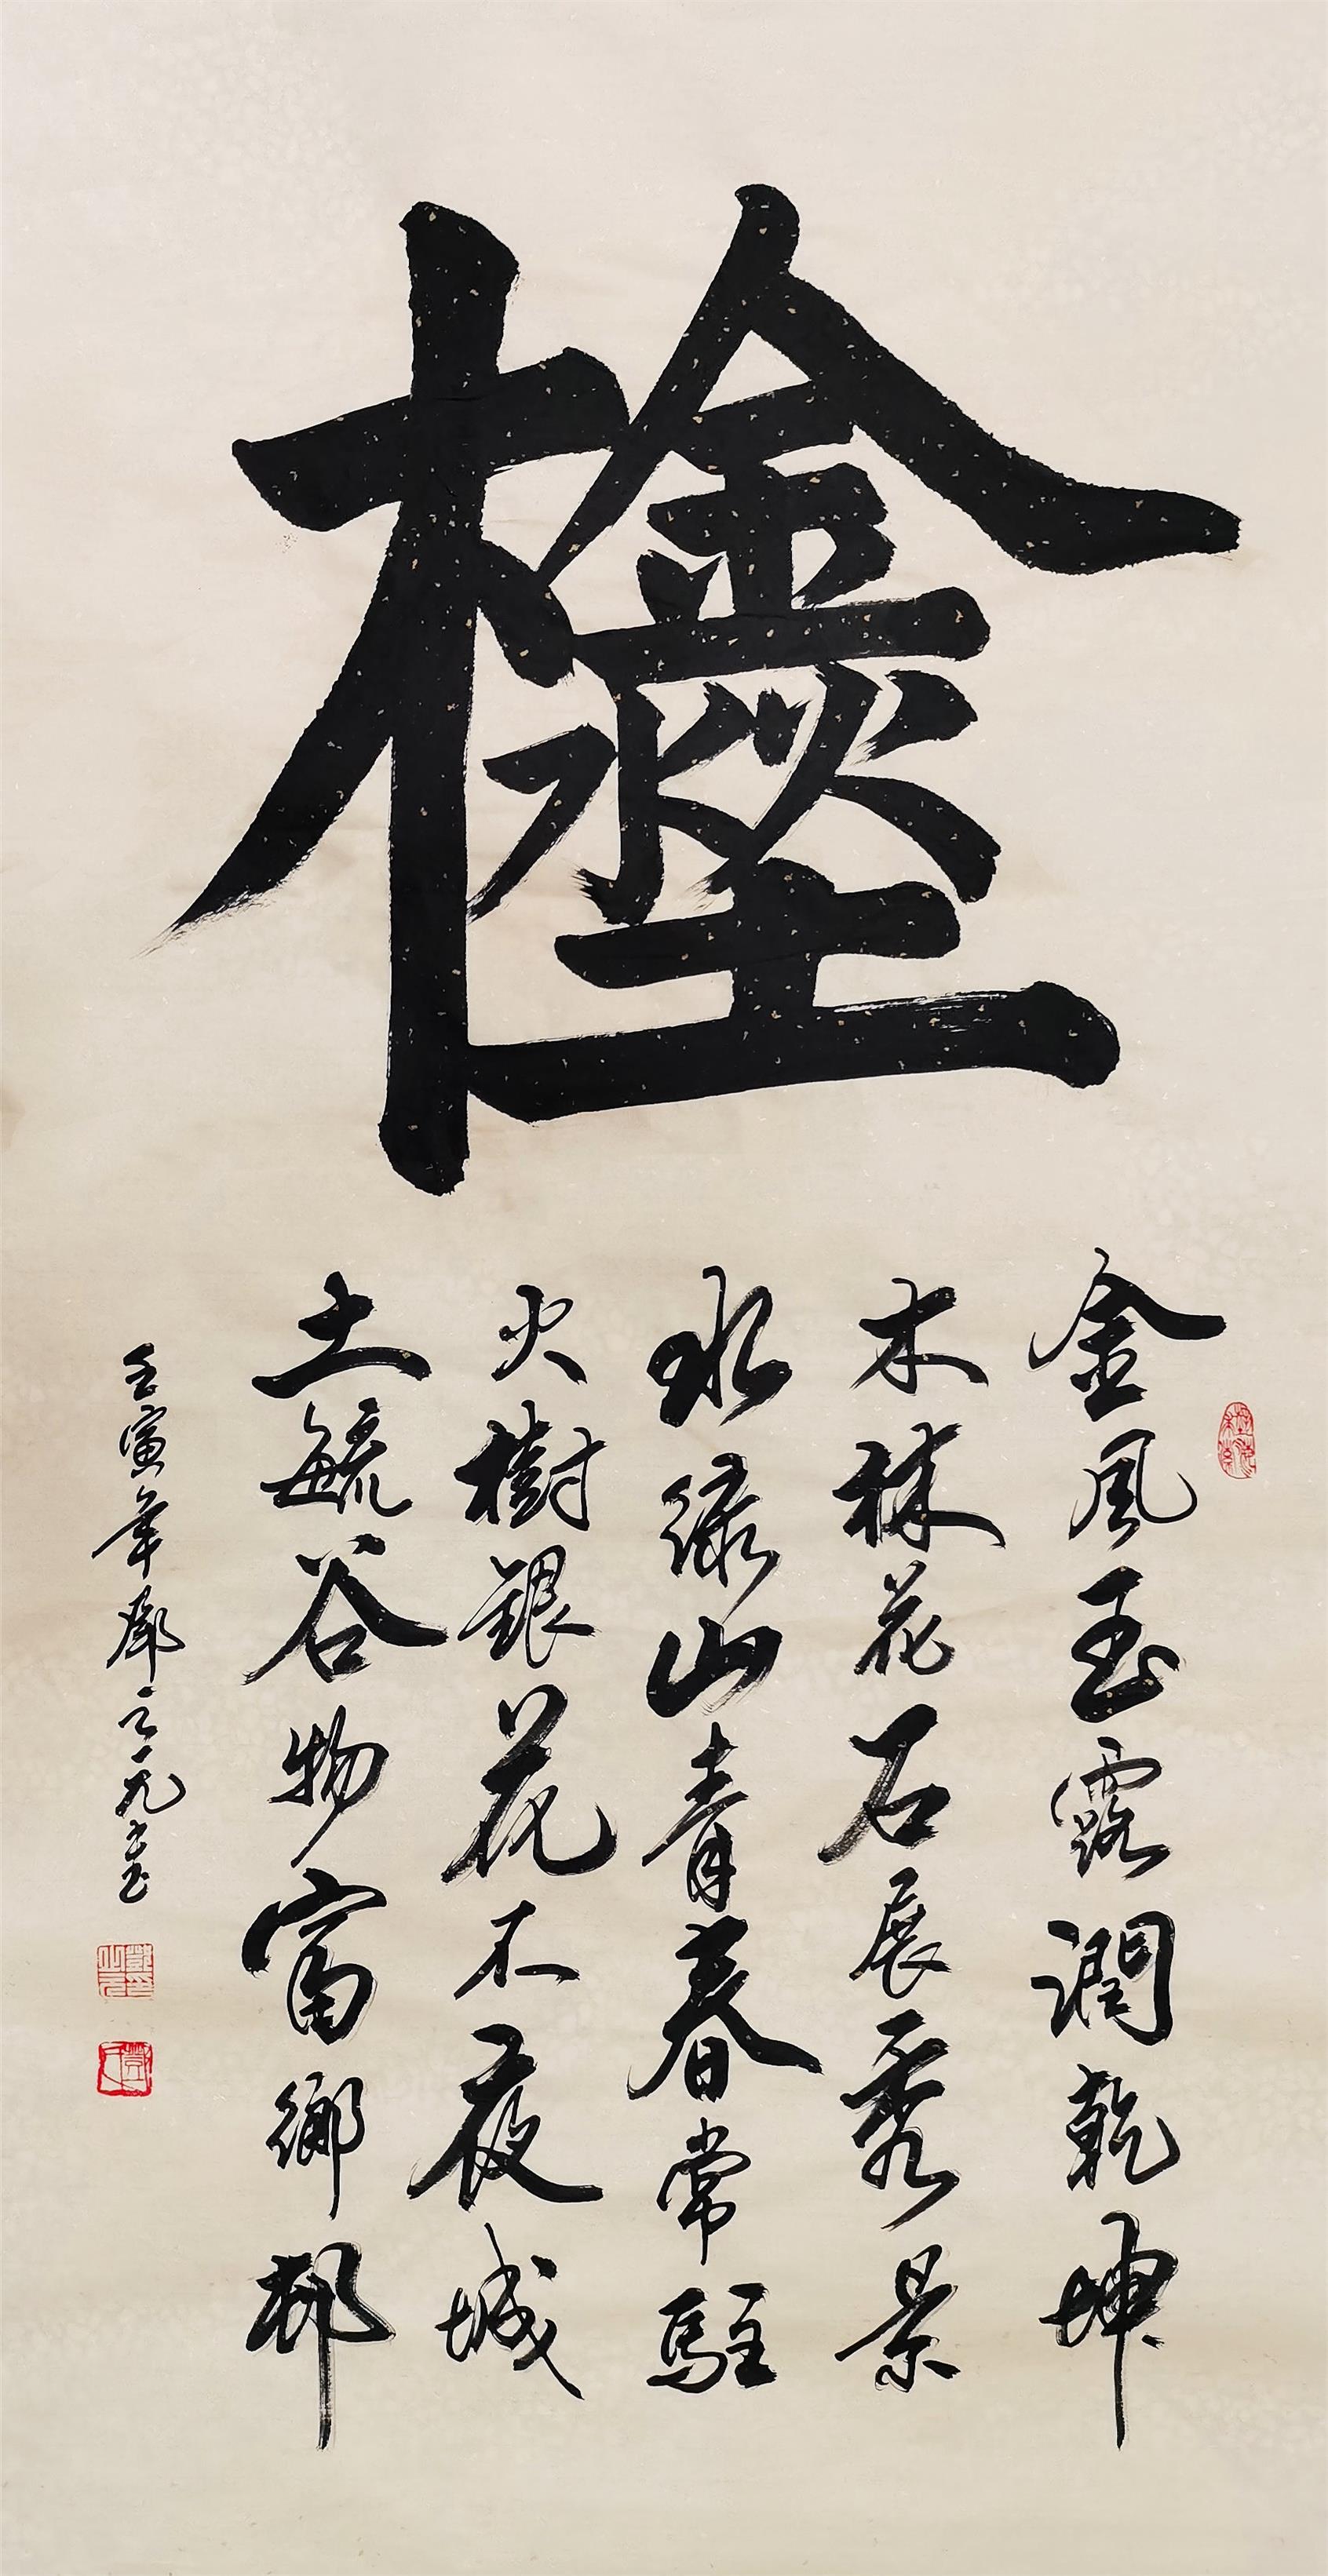 金風玉露潤乾坤
木林花石展秀景
水綠山青春常駐
火樹銀花不夜城
土毓谷物富鄉邨
壬寅年鄧之元書